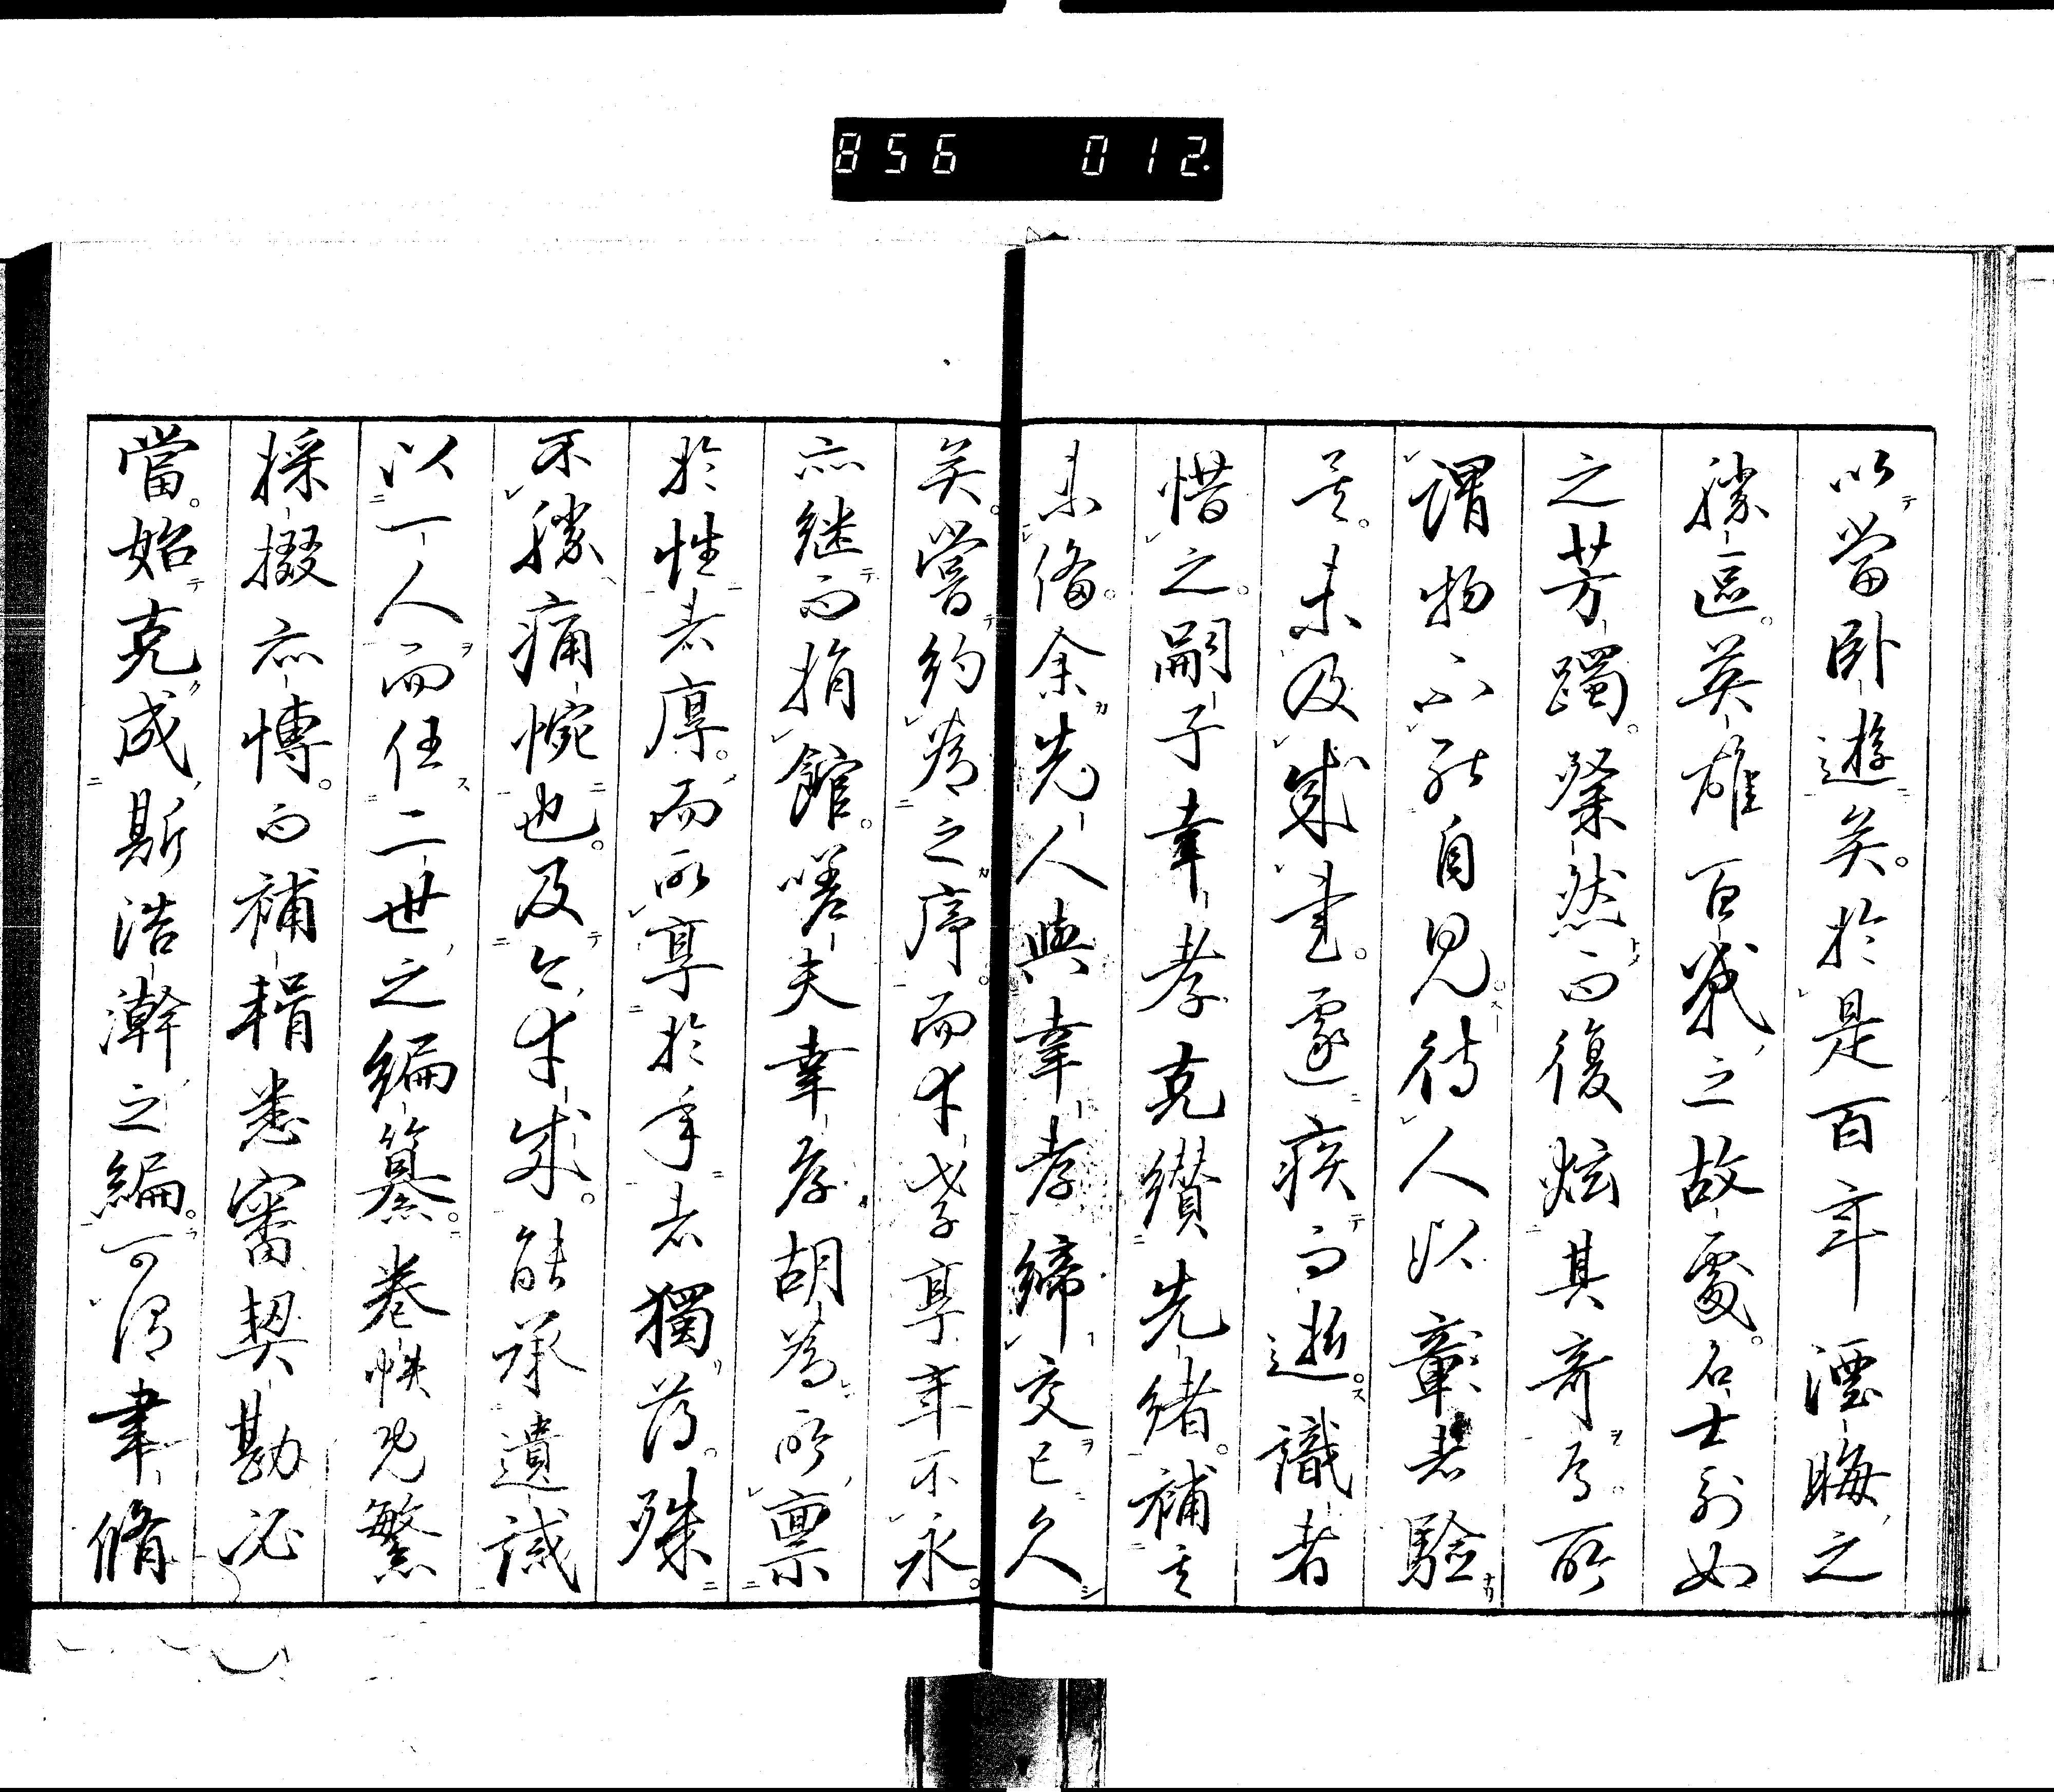 856 012.
以當臥遊矣。於是百年湮晦之
勝區。英雄百戰之故處。名士列女
之芳躅。粲然而復炫其奇焉。所
謂物不能自見。待人以彰者驗
矣。未及成書。遽疾而逝。識者
惜之。嗣子幸孝克纘先緒。補其
未備。余先人與幸孝締交已久
矣。嘗約為之序。而幸孝享年不永。
亦継而捐館。嗟夫幸孝胡為所稟
於性者厚。而所享於年者獨薄。殊
不勝痛惋也。及今幸成。能承遺誡
以一人而任二世之編纂。巻帙既繁
採掇亦博。而補輯悉審契勘必
當。始克成斯浩瀚之編。可謂聿脩